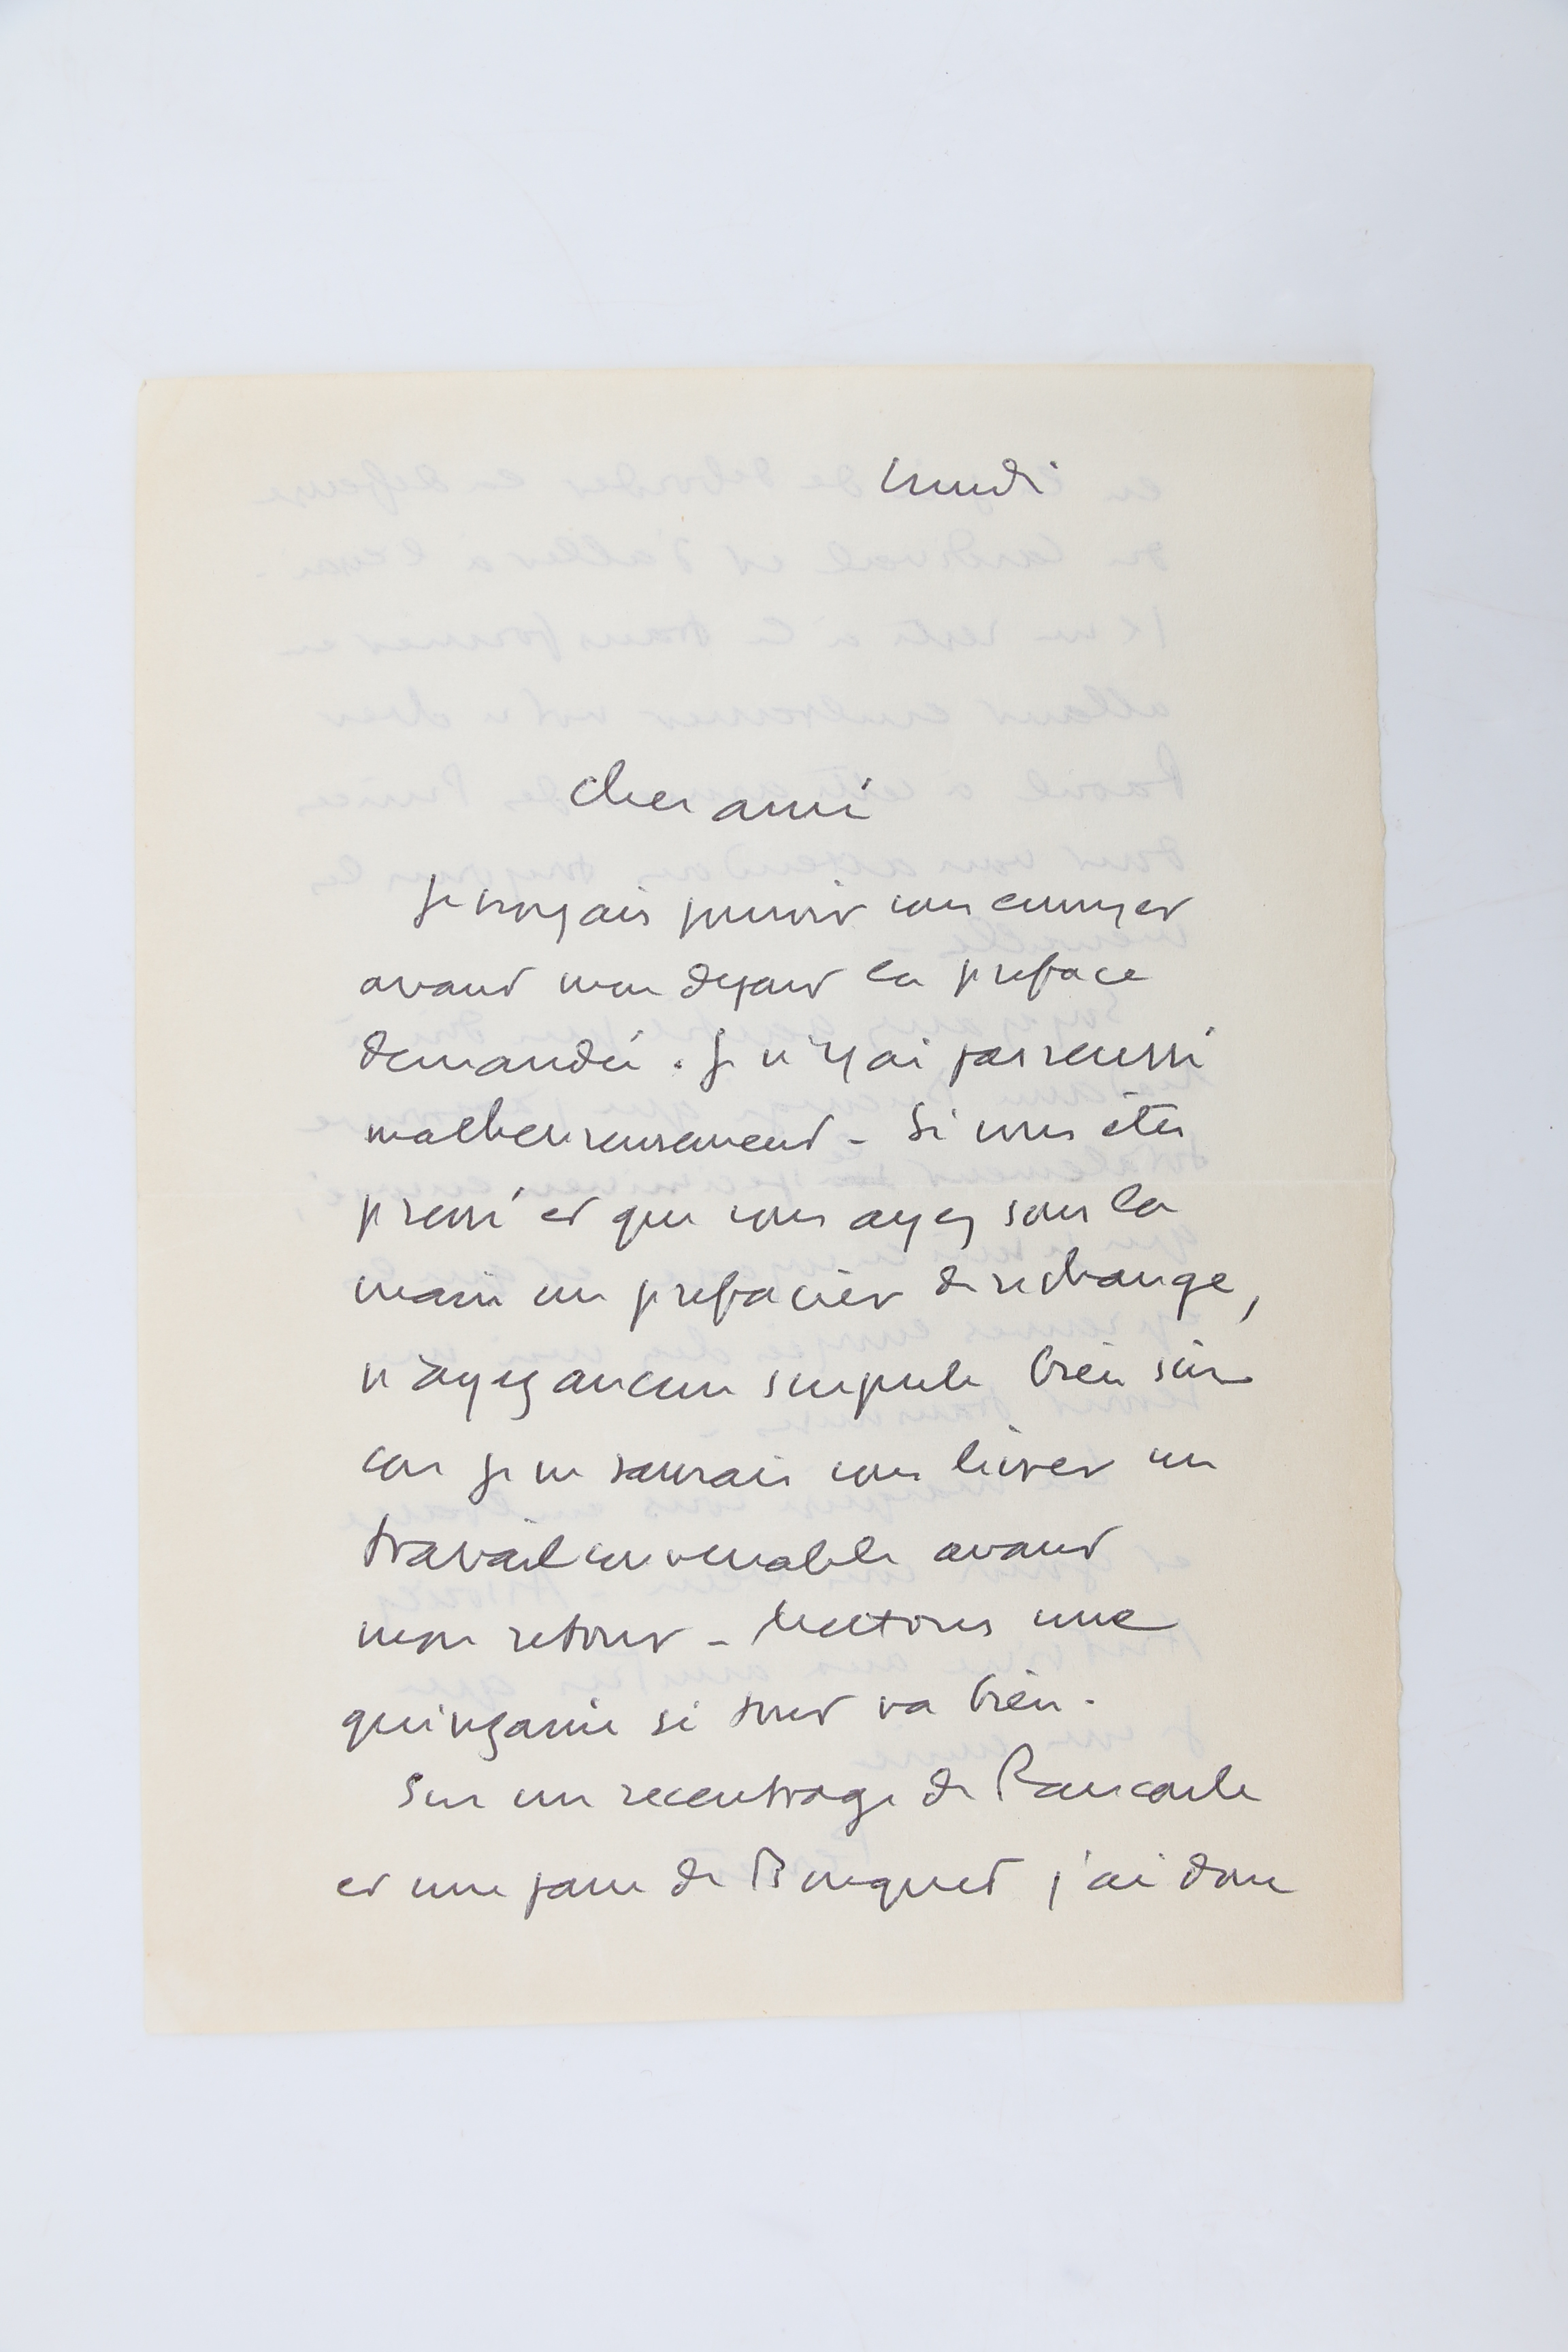 lundi
cher ami
Je croyais pouvoir vous envoyer
avant mon depart la preface
demandée. Je n'y ai pas reussi
malheureusement - Si vous êtes
pressé et que vous ayez sous la
main un prefacier de rechange,
n'ayez aucun scrupule bien sûr
car je ne saurais vous livrer un
travail convenable avant
mon retour - Mettons une
quinzaine si tout va bien.
Sur un recentrage de Rancoule
et une passe de Bouquet j'ai donc